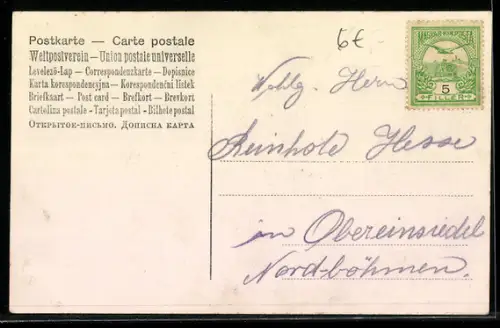 Postkarte — Carte postale
Weltpostverein — Union postale universelle
Levelező-Lap — Correspondenzkarte — Dopisnice
Karta korespondencyjna — Korespondenční lístek
Briefkaart — Post card — Brefkort — Brevkort
Cartolina postale — Tarjeta postal — Bilhete postal
Открытое-письмо. Дописна карта
6€
5
FILLÉR
Wohlg. Herrn
Reinhold Hesse
in Obereinsiedel
Nord-böhmen.